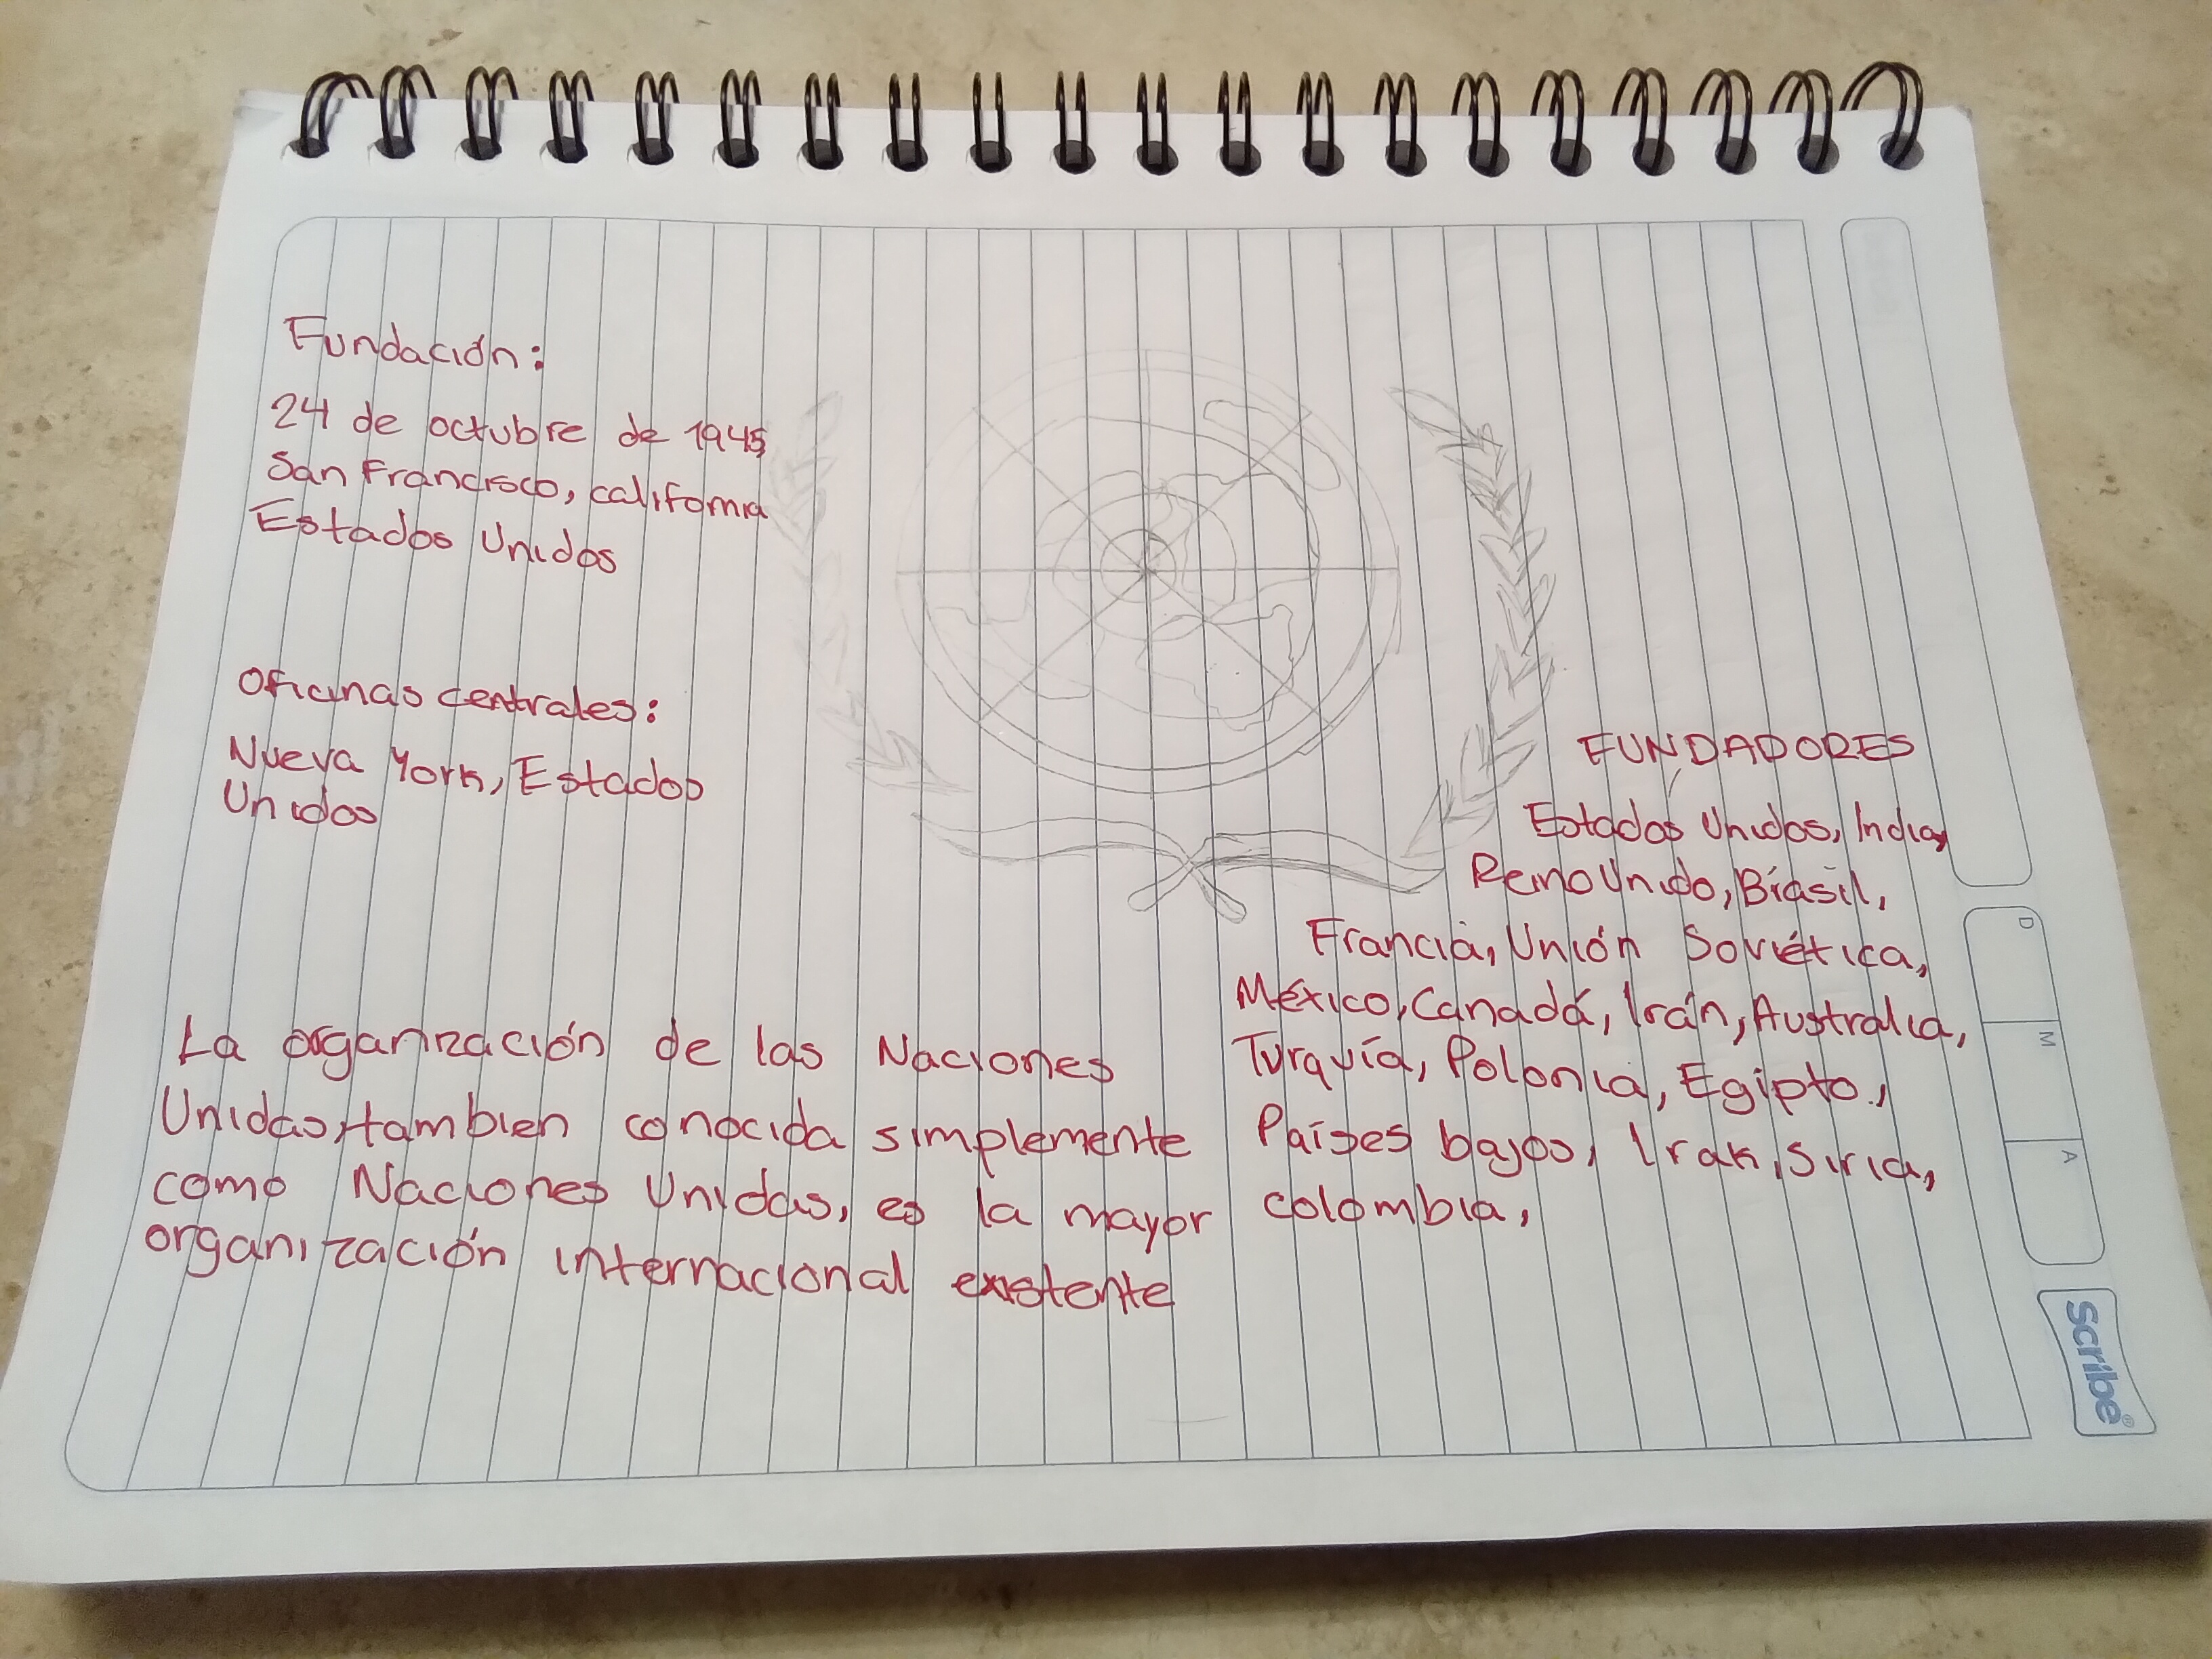 Fundación:
24 de octubre de 1945
San Francisco, california
Estados Unidos
Oficinas centrales:
Nueva York, Estados
Unidos
La organización de las Naciones
Unidas, tambien conocida simplemente
como Naciones Unidas, es la mayor
organización internacional existente
FUNDADORES
Estados Unidos, India,
Reino Unido, Brasil,
Francia, Unión Soviética,
México, Canadá, Irán, Australia,
Turquía, Polonia, Egipto,
Países bajos, Irak, Siria,
colombia,
D
M
A
Scribe®